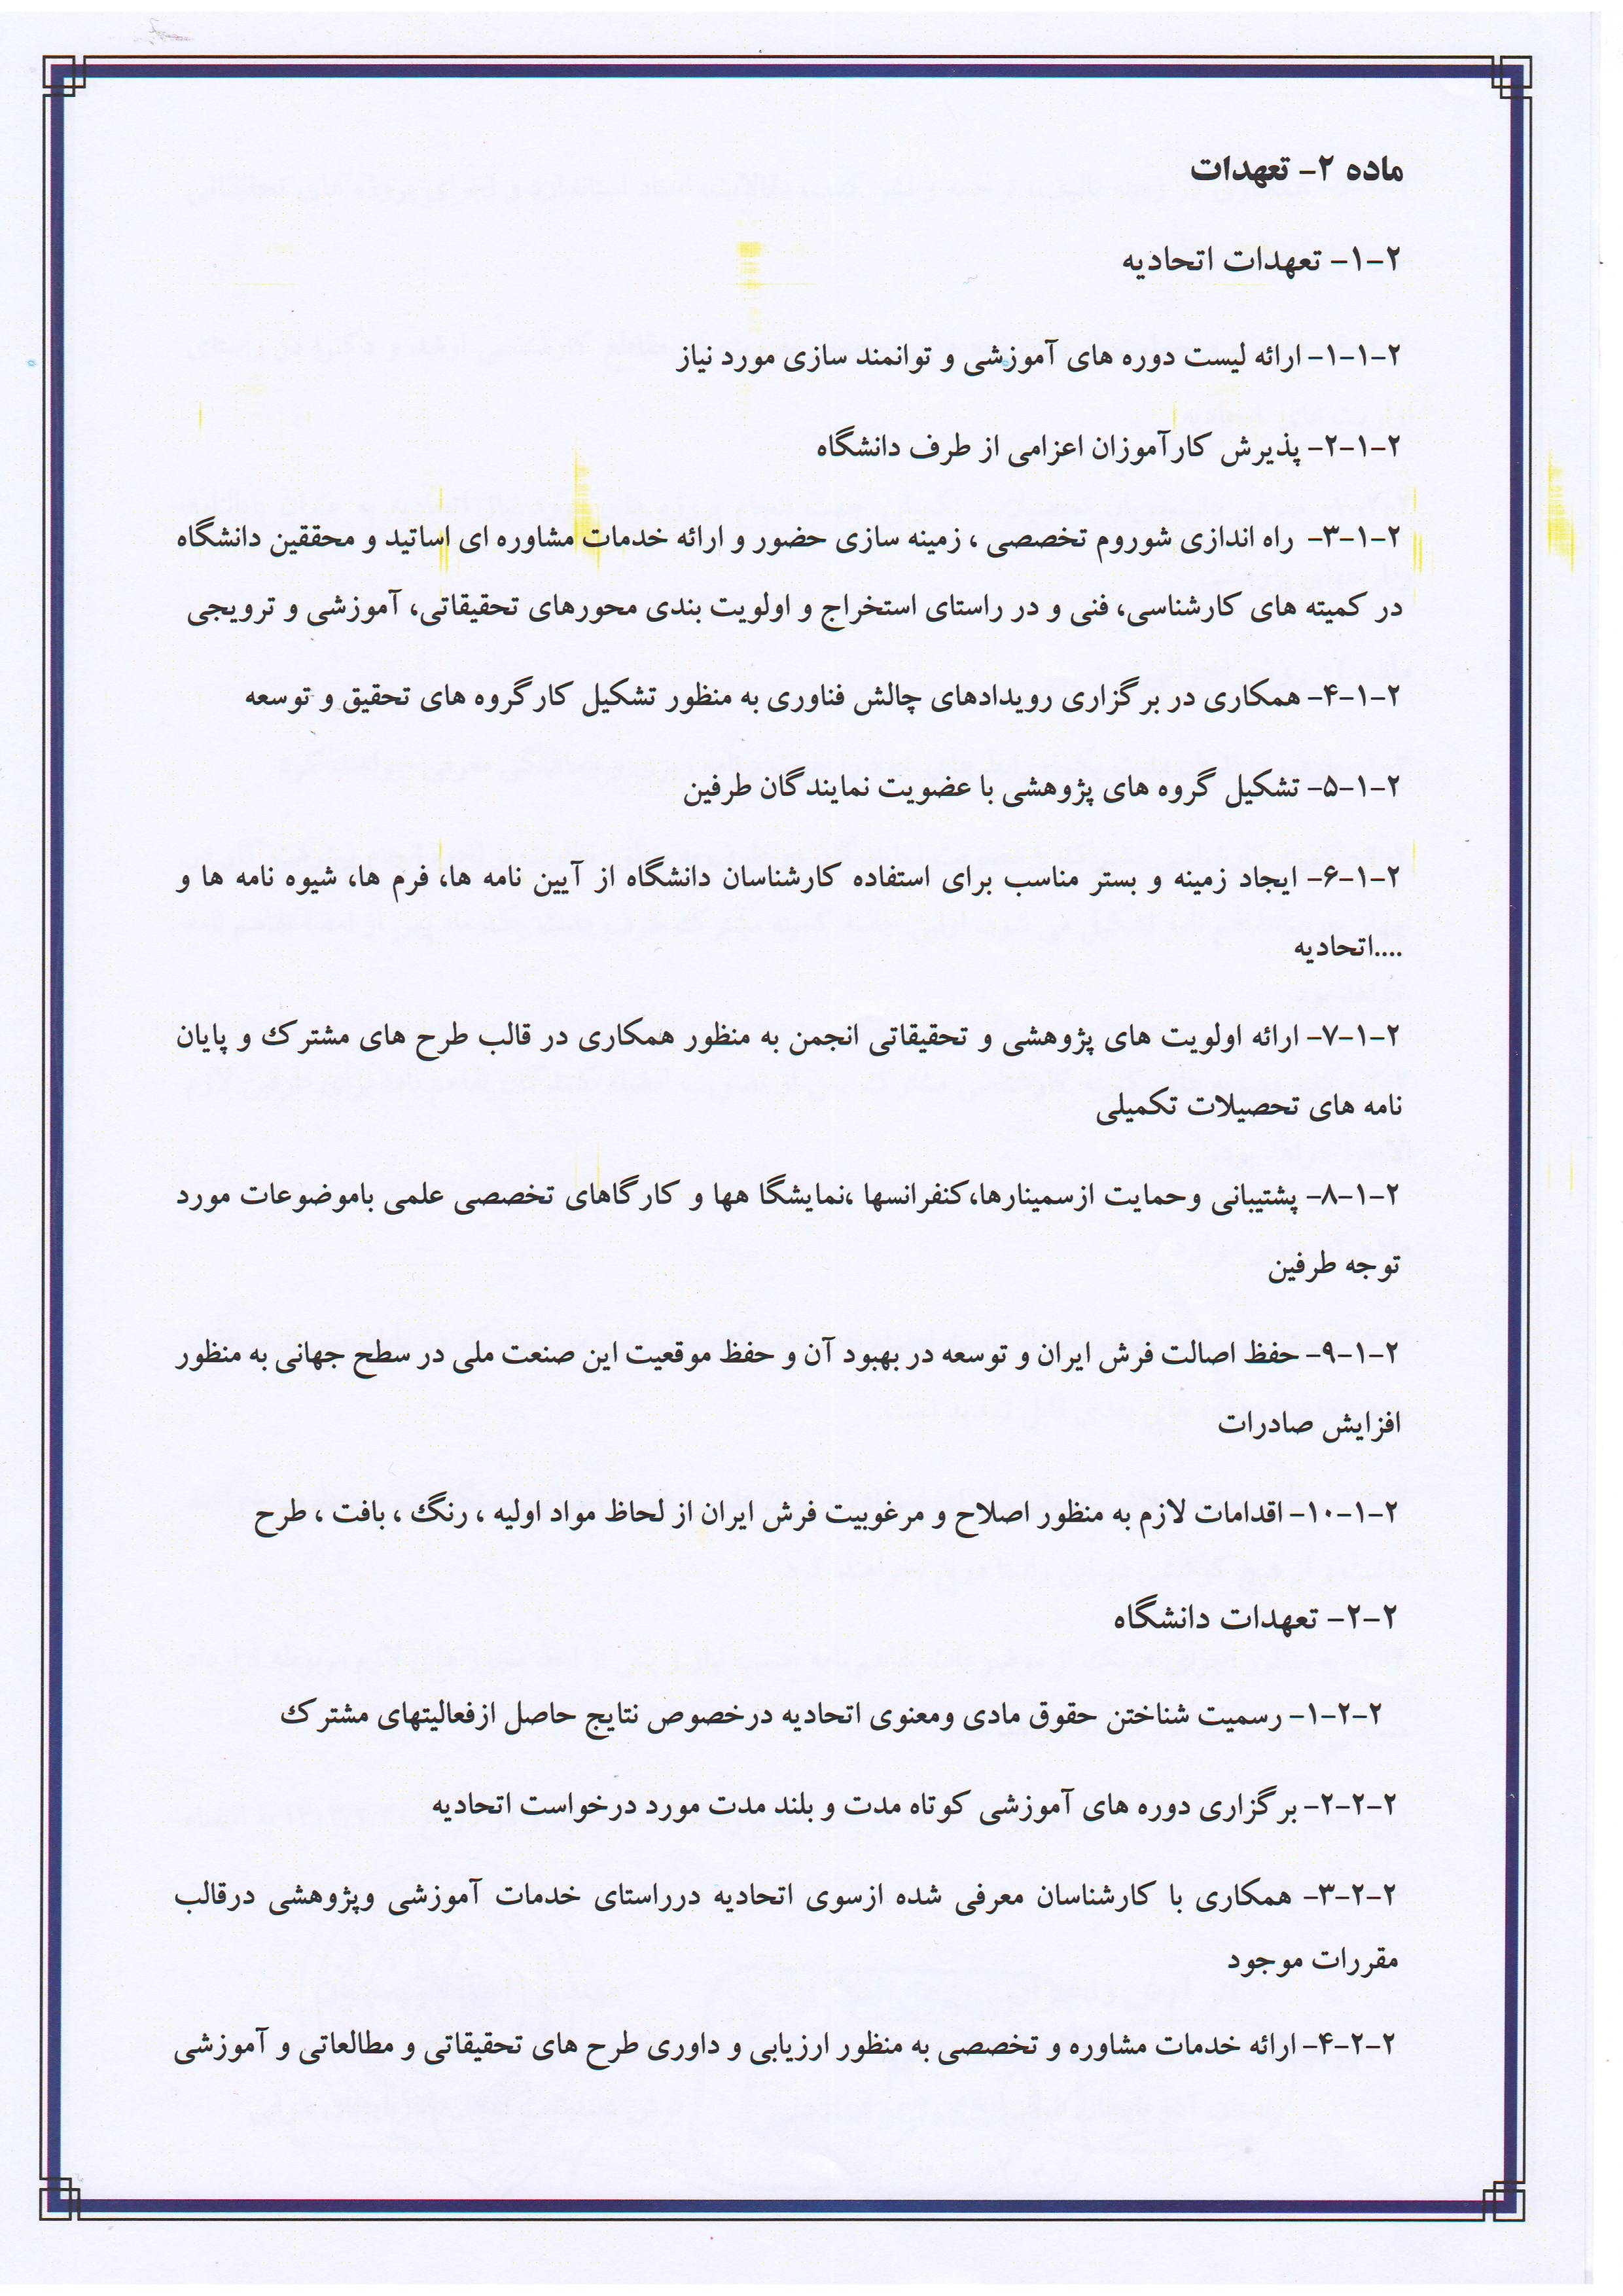 ماده ۲- تعهدات
۲-۱- تعهدات اتحادیه
۲-۱-۱- ارائه لیست دوره های آموزشی و توانمند سازی مورد نیاز
۲-۱-۲- پذیرش کارآموزان اعزامی از طرف دانشگاه
۲-۱-۳- راه اندازی شوروم تخصصی ، زمینه سازی حضور و ارائه خدمات مشاوره ای اساتید و محققین دانشگاه
در کمیته های کارشناسی، فنی و در راستای استخراج و اولویت بندی محورهای تحقیقاتی، آموزشی و ترویجی
۲-۱-۴- همکاری در برگزاری رویدادهای چالش فناوری به منظور تشکیل کارگروه های تحقیق و توسعه
۲-۱-۵- تشکیل گروه های پژوهشی با عضویت نمایندگان طرفین
۲-۱-۶- ایجاد زمینه و بستر مناسب برای استفاده کارشناسان دانشگاه از آیین نامه ها، فرم ها، شیوه نامه ها و
....اتحادیه
۲-۱-۷- ارائه اولویت های پژوهشی و تحقیقاتی انجمن به منظور همکاری در قالب طرح های مشترک و پایان
نامه های تحصیلات تکمیلی
۲-۱-۸- پشتیبانی وحمایت ازسمینارها،کنفرانسها ،نمایشگا هها و کارگاهای تخصصی علمی باموضوعات مورد
توجه طرفین
۲-۱-۹- حفظ اصالت فرش ایران و توسعه در بهبود آن و حفظ موقعیت این صنعت ملی در سطح جهانی به منظور
افزایش صادرات
۲-۱-۱۰- اقدامات لازم به منظور اصلاح و مرغوبیت فرش ایران از لحاظ مواد اولیه ، رنگ ، بافت ، طرح
۲-۲- تعهدات دانشگاه
۲-۲-۱- رسمیت شناختن حقوق مادی ومعنوی اتحادیه درخصوص نتایج حاصل ازفعالیتهای مشترک
۲-۲-۲- برگزاری دوره های آموزشی کوتاه مدت و بلند مدت مورد درخواست اتحادیه
۲-۲-۳- همکاری با کارشناسان معرفی شده ازسوی اتحادیه درراستای خدمات آموزشی وپژوهشی درقالب
مقررات موجود
۲-۲-۴- ارائه خدمات مشاوره و تخصصی به منظور ارزیابی و داوری طرح های تحقیقاتی و مطالعاتی و آموزشی